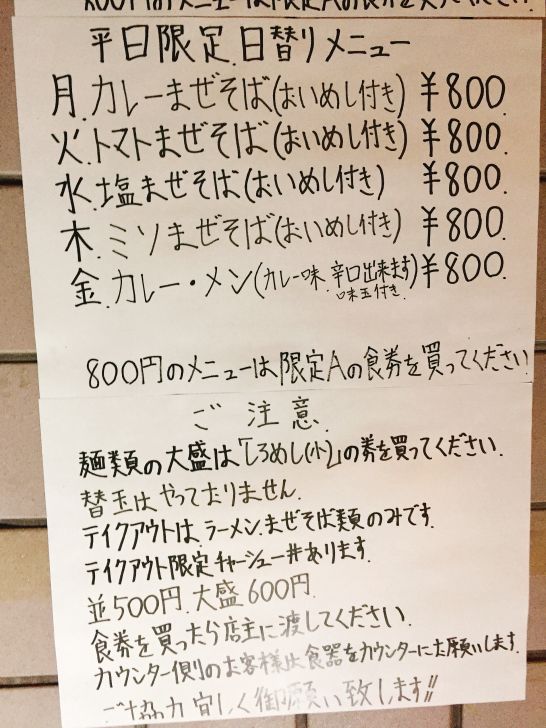 800円のメニューは限定Aの食券を買ってください
平日限定.日替りメニュー
月.カレーまぜそば(おいめし付き) ¥800.
火.トマトまぜそば(おいめし付き) ¥800.
水.塩まぜそば(おいめし付き) ¥800.
木.ミソまぜそば(おいめし付き) ¥800.
金.カレー・メン(カレー味.辛口出来ます) ¥800.
味玉付き.
800円のメニューは限定Aの食券を買ってください
ご注意.
麺類の大盛は「しろめし(小)」の券を買ってください.
替玉はやっておりません.
テイクアウトは.ラーメン.まぜそば類のみです.
テイクアウト限定チャーシュー丼あります.
並500円.大盛600円.
食券を買ったら店主に渡してください.
カウンター側のお客様は食器をカウンターにお願いします.
ご協力宜しく御願い致します!!